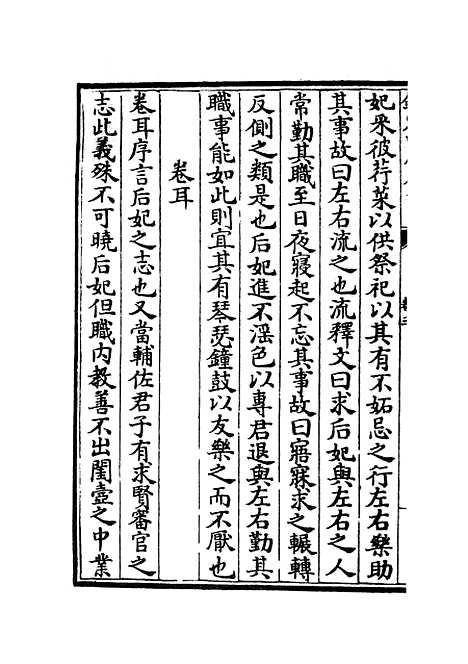 妃采彼荇菜以供祭祀以其有不妬忌之行左右樂助
其事故曰左右流之也流釋文曰求后妃與左右之人
常勤其職至日夜寢起不忘其事故曰寤寐求之輾轉
反側之類是也后妃進不滛色以專君退與左右勤其
職事能如此則宜其有琴瑟鐘鼓以友樂之而不厭也
卷耳
卷耳序言后妃之志也又當輔佐君子有求賢審官之
志此義殊不可曉后妃但職內教善不出閨壼之中業